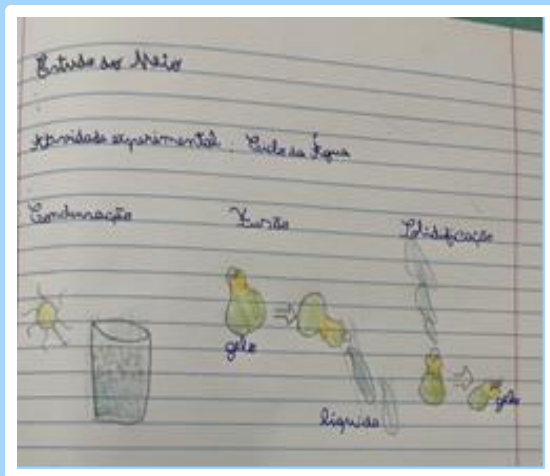 Estudo do Meio
Atividade experimental. Ciclo da Água
Condensação Fusão Solidificação
gelo
gelo
líquido